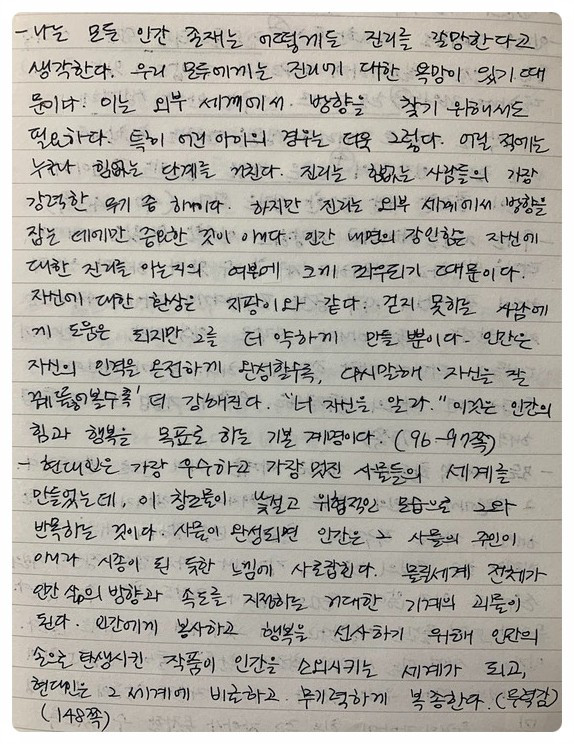 - 나는 모든 인간 존재는 어떻게든 진리를 갈망한다고
생각한다. 우리 모두에게는 진리에 대한 욕망이 있기 때
문이다. 이는 외부 세계에서 방향을 찾기 위해서도
필요하다. 특히 어린 아이의 경우는 더욱 그렇다. 어릴 적에는
누구나 힘없는 단계를 거친다. 진리는 힘없는 사람들의 가장
강력한 무기 중 하나이다. 하지만 진리는 외부 세계에서 방향을
잡는 데에만 중요한 것이 아니다. 인간 내면의 강인함은 자신에
대한 진리를 아는지의 여부에 크게 좌우되기 때문이다.
자신에 대한 환상은 지팡이와 같다. 걷지 못하는 사람에
게 도움은 되지만 그를 더 약하게 만들 뿐이다. 인간은
자신의 인격을 온전하게 완성할수록, 다시말해 '자신을 잘
꿰뚫어볼수록' 더 강해진다. "너 자신을 알라." 이것은 인간의
힘과 행복을 목표로 하는 기본 계명이다. (96-97쪽)
- 현대인은 가장 우수하고 가장 멋진 사물들의 세계를
만들었는데, 이 창조물이 낯설고 위협적인 모습으로 그와
반목하는 것이다. 사물이 완성되면 인간은 그 사물의 주인이
아니라 시종이 된 듯한 느낌에 사로잡힌다. 물질세계 전체가
인간 삶의 방향과 속도를 지정하는 거대한 기계의 괴물이
된다. 인간에게 봉사하고 행복을 선사하기 위해 인간의
손으로 탄생시킨 작품이 인간을 소외시키는 세계가 되고,
현대인은 그 세계에 비굴하고 무기력하게 복종한다. (무력감)
(148쪽)